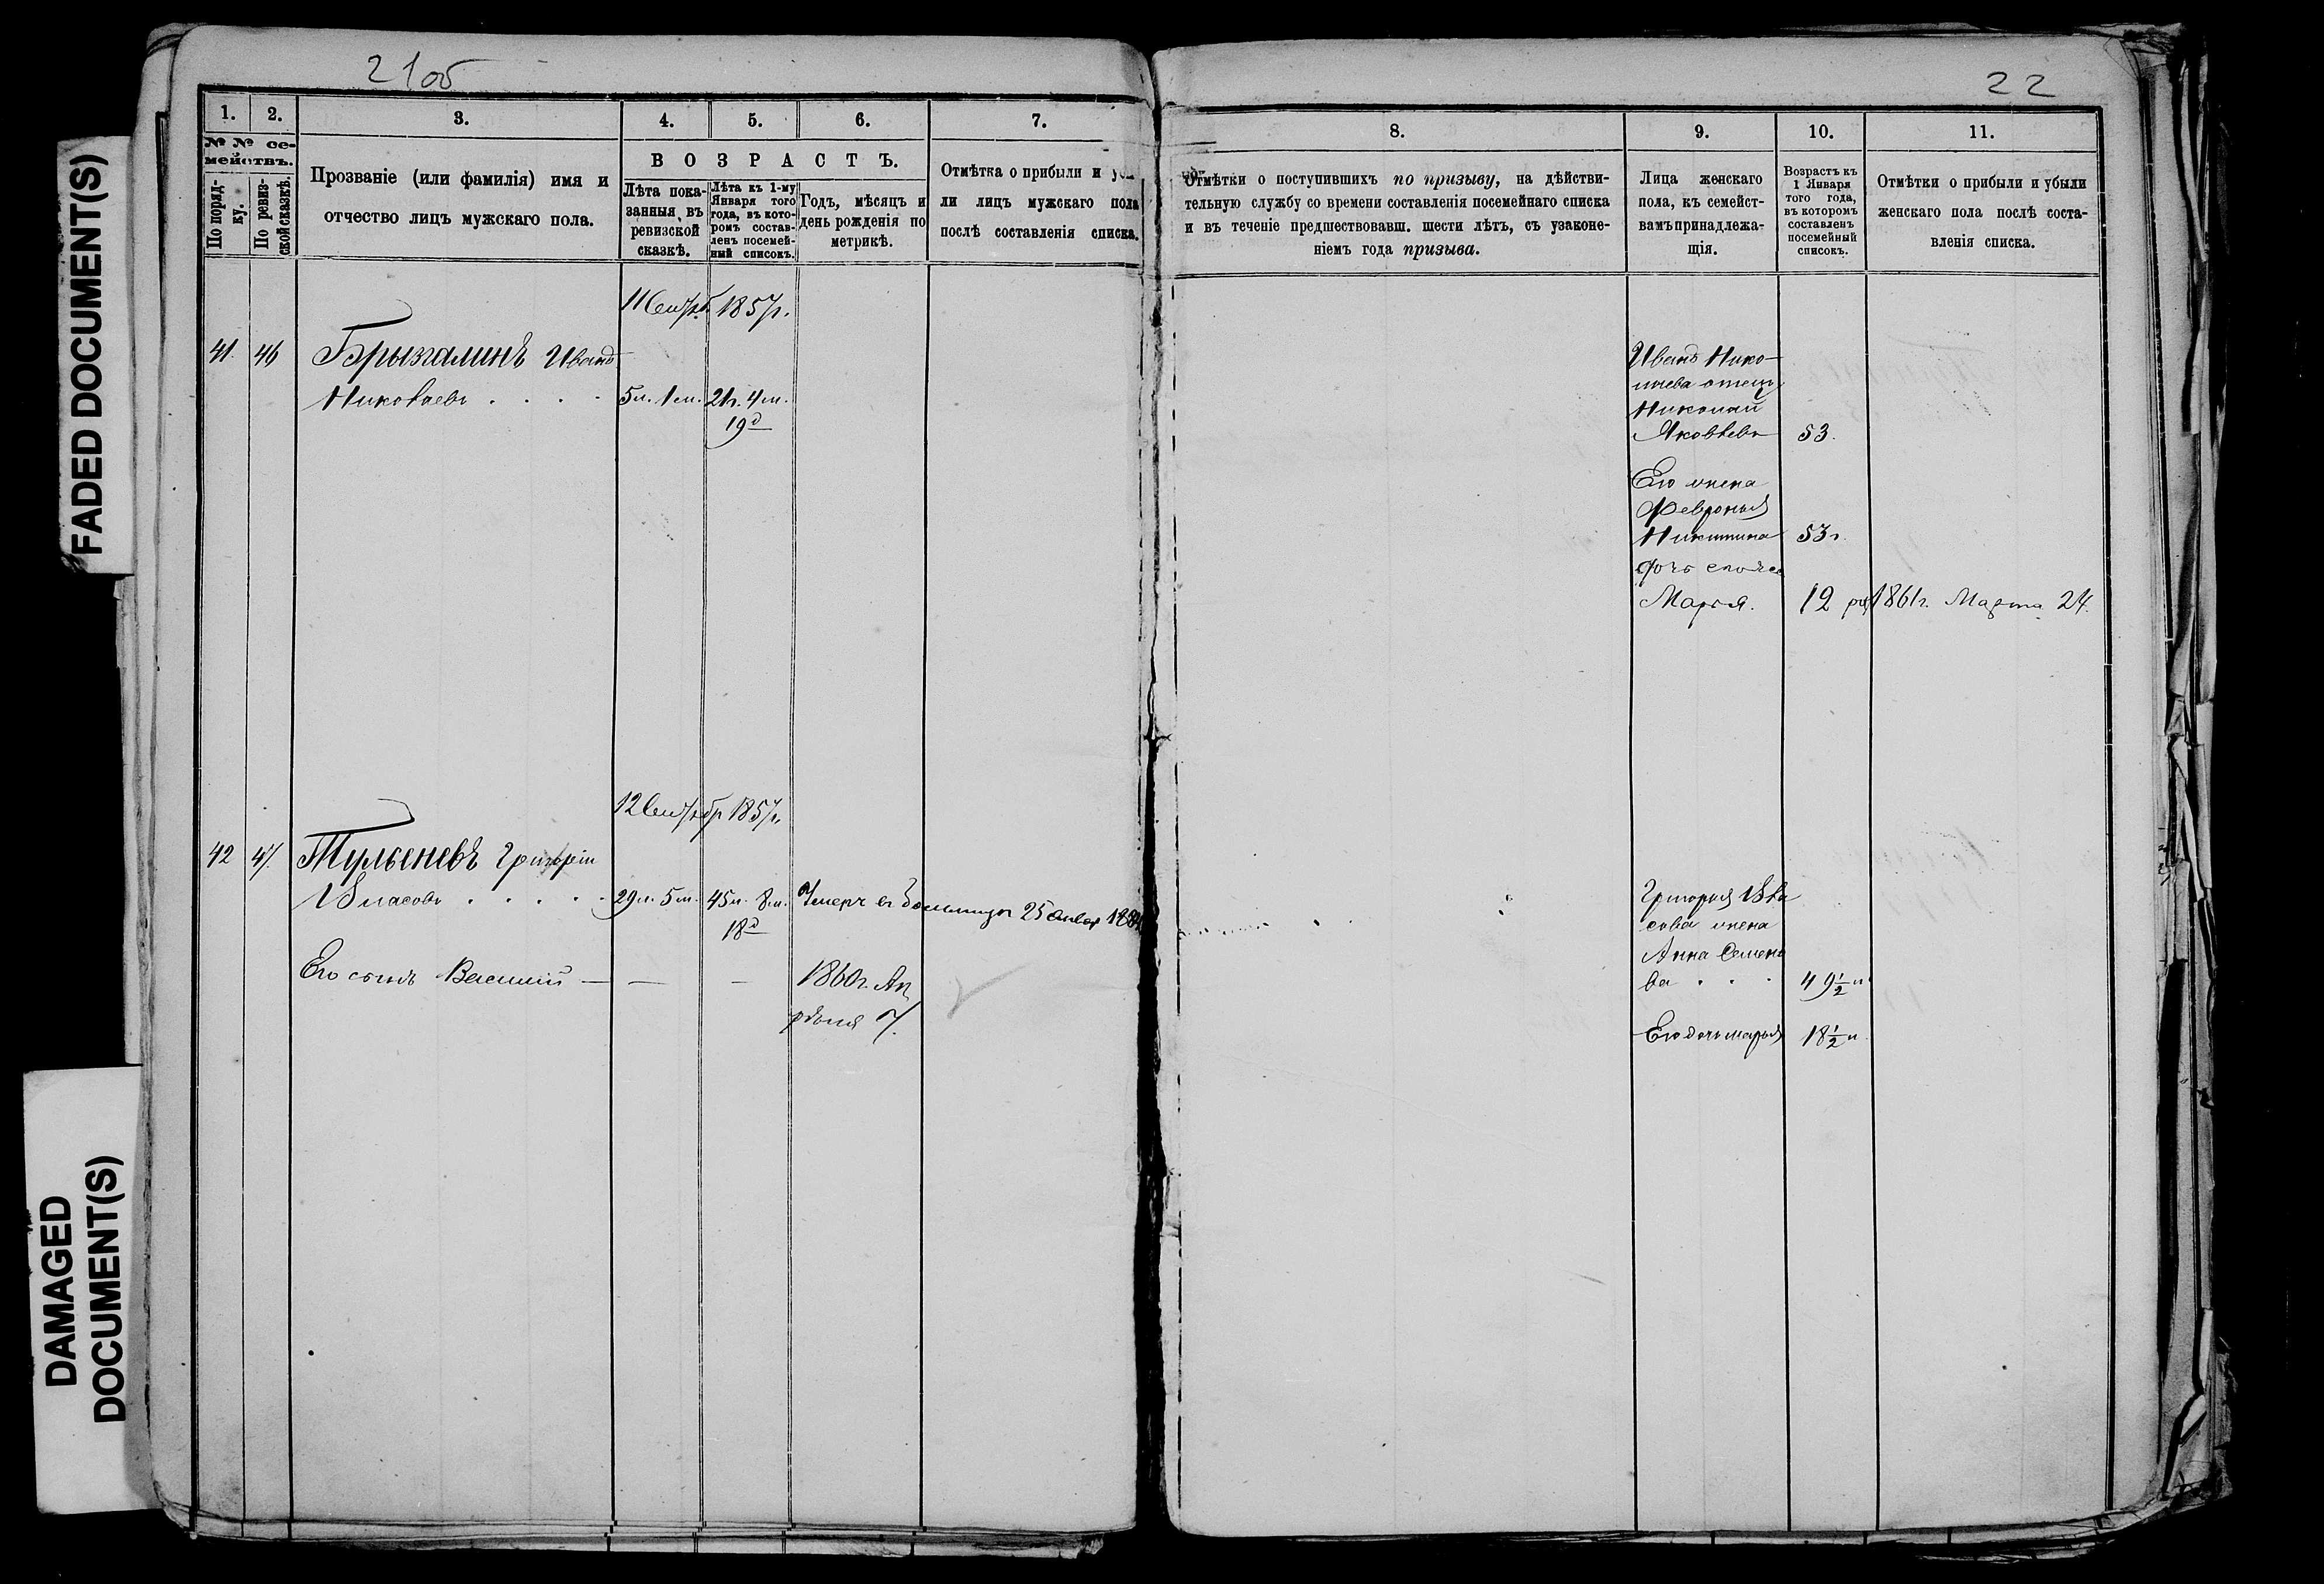 FADED DOCUMENT(S)
DAMAGED
DOCUMENT(S)
21об
1.
2.
3.
4.
5.
6.
7.
№ № се-
мействъ.
По поряд-
ку.
По ревиз-
ской сказкѣ.
Прозваніе (или фамилія) имя и
отчество лицъ мужскаго пола.
ВОЗРАСТЪ.
Лѣта пока-
занныя въ
ревизской
сказкѣ.
Лѣта къ 1-му
Января того
года, въ кото-
ромъ состав-
ленъ посемей-
ный списокъ.
Годъ, мѣсяцъ и
день рожденія по
метрикѣ.
Отмѣтка о прибыли и
ли лицъ мужскаго пола
послѣ составленія списка.
1857г.
41. 46 Брызгалинъ Иванъ
Николаевъ . . . . 5л. 1м. 21г. 4м.
19д
1857г.
42 47. Тульеневъ Григорій
Власовъ . . . . . 29л. 5м. 45л. 8м. Умеръ въ 25 Январ
18д
Его сынъ Василій — — — 1860г. Ап
рѣля 7.
22
8.
9.
10.
11.
Отмѣтки о поступившихъ по призыву, на дѣйстви-
тельную службу со времени составленія посемейнаго списка
и въ теченіе предшествовавш. шести лѣтъ, съ узаконе-
ніемъ года призыва.
Лица женскаго
пола, къ семейст-
вамъ принадлежа-
щія.
Возрастъ къ
1 Января
того года,
въ которомъ
составленъ
посемейный
списокъ.
Отмѣтки о прибыли и убыли
женскаго пола послѣ соста-
вленія списка.
Ивана Нико-
лаева отецъ
Николай
Яковлевъ 53.
Его жена
Февронья
Никитина 53г.
дочь
Марья. 12 1861г. Марта 24.
Григорья Вла
сова жена
Анна Семено
ва . . . 49½ л
Его дочь Марья 18½ л